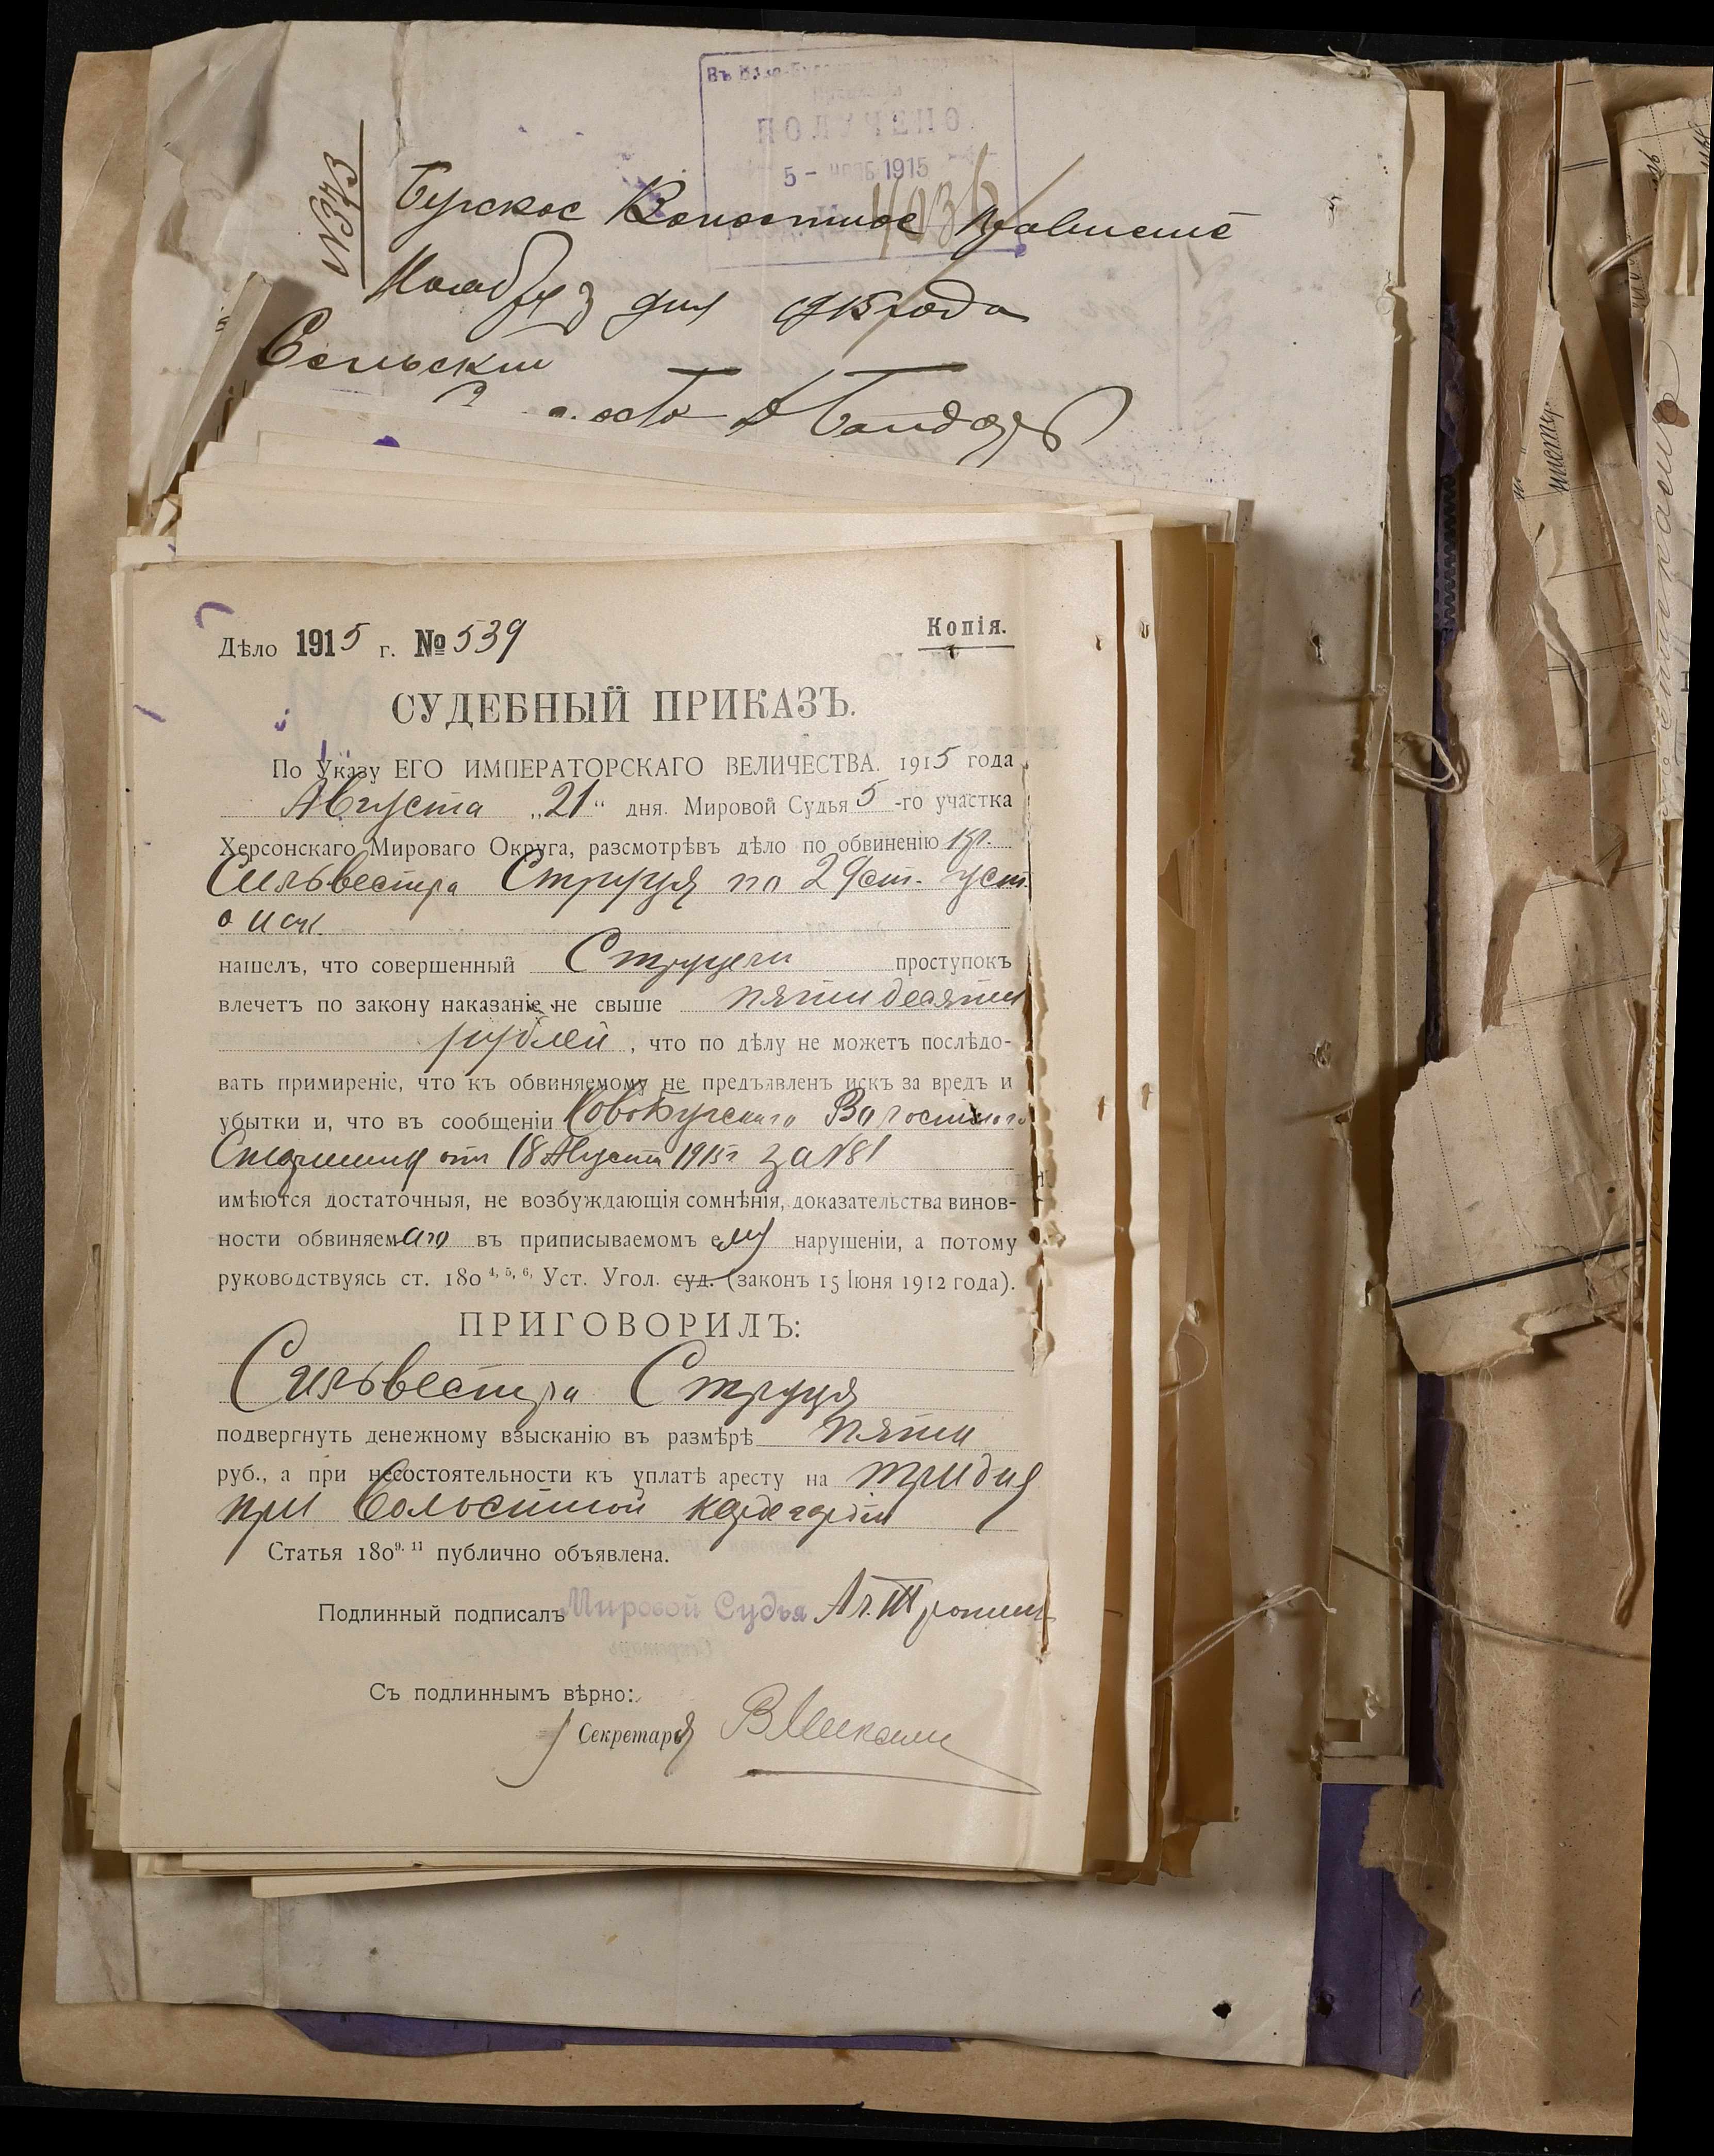 Въ
ПОЛУЧЕНО
5 - 1915
№ 373
Бугское Волостное Правление
Ноября 3 дня 1915 года
Сельский
Дѣло 1915 г. № 539
Копія.
СУДЕБНЫЙ ПРИКАЗЪ.
По Указу ЕГО ИМПЕРАТОРСКАГО ВЕЛИЧЕСТВА. 1915 года
Августа „21“ дня. Мировой Судья 5-го участка
Херсонскаго Мироваго Округа, разсмотрѣвъ дѣло по обвиненію кр.
Сильвестра Струця по 29 ст. уст.
о нак.
нашелъ, что совершенный Струцем проступокъ
влечетъ по закону наказаніе не свыше пятидесяти
рублей, что по дѣлу не можетъ послѣдо-
вать примиреніе, что къ обвиняемому не предъявленъ искъ за вредъ и
убытки и, что въ сообщеніи Новобугскаго Волостного
Старшины от 18 Августа 1915 г за № 81
имѣются достаточныя, не возбуждающія сомнѣнія, доказательства винов-
ности обвиняемаго въ приписываемомъ ему нарушеніи, а потому
руководствуясь ст. 180 4, 5, 6, Уст. Угол. суд. (законъ 15 Іюня 1912 года).
ПРИГОВОРИЛЪ:
Сильвестра Струця
подвергнуть денежному взысканію въ размѣрѣ пяти
руб., а при несостоятельности къ уплатѣ аресту на три дня
при волостной
Статья 180 9, 11 публично объявлена.
Подлинный подписалъ Мировой Судья
Съ подлиннымъ вѣрно:
Секретарь